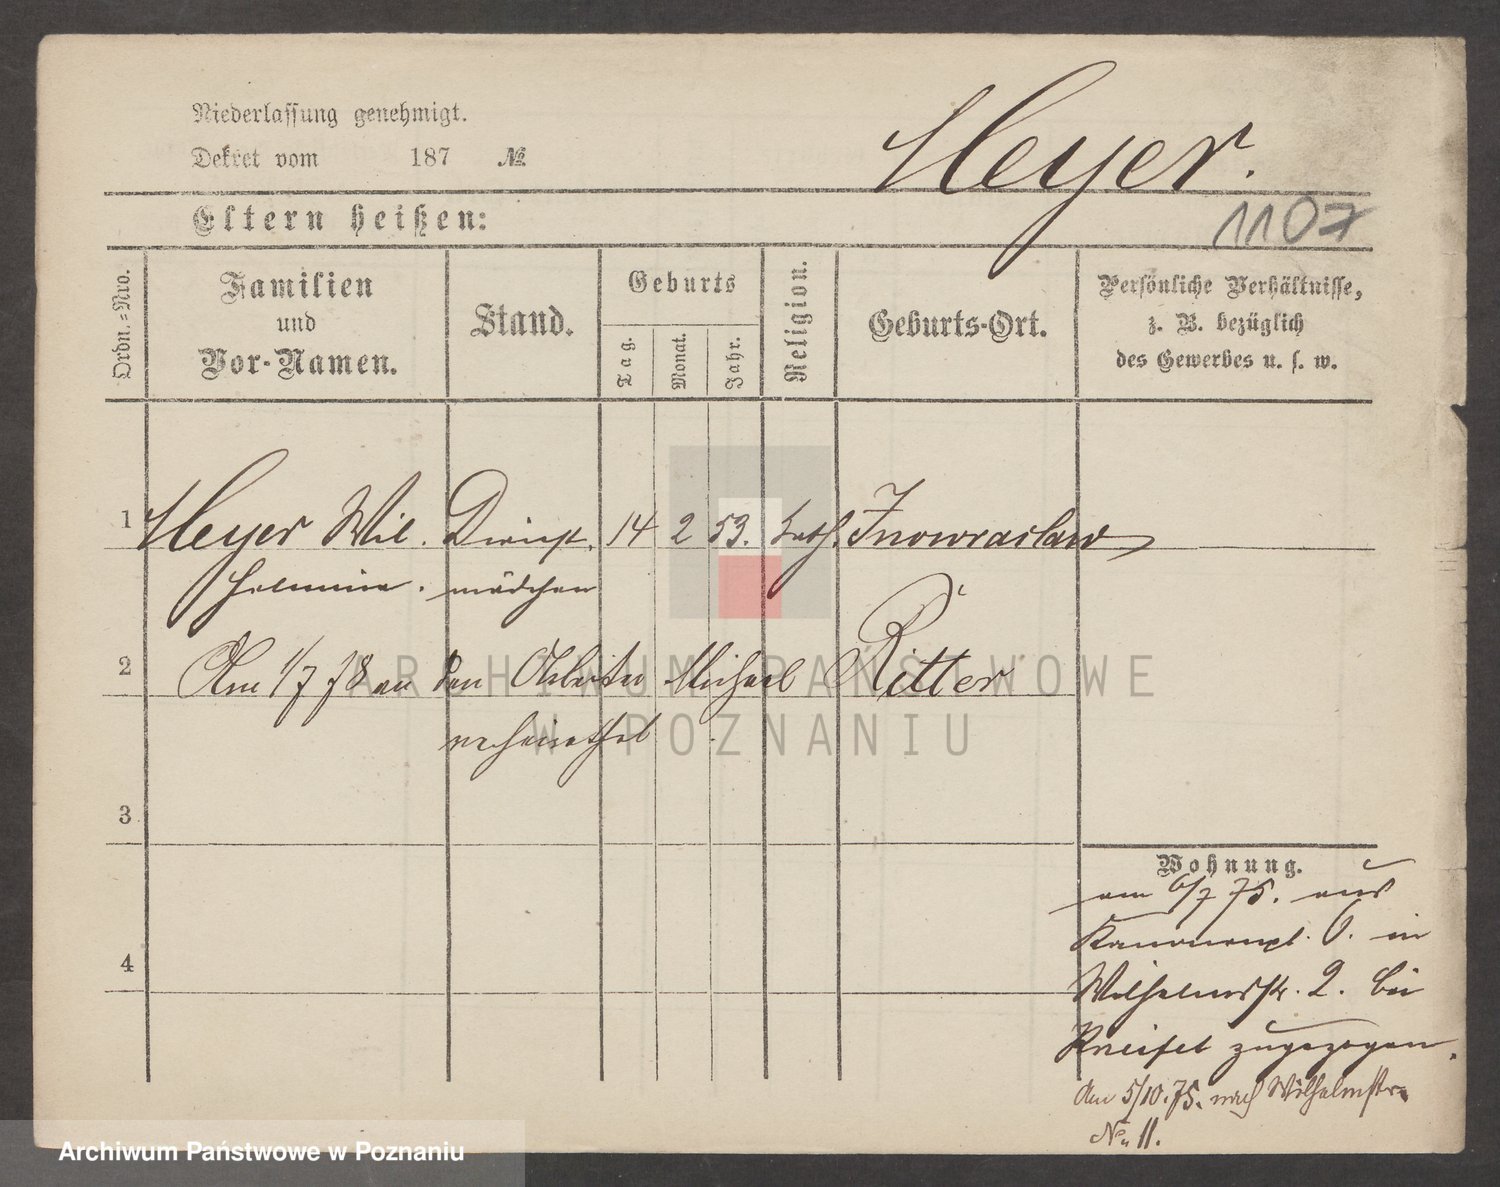 Niederlassung genehmigt.
Dekret vom 187 №
Heyer.
1107
Eltern heißen:
Ordn.-Nro.
Familien
und
Vor-Namen.
Stand.
Geburts
Tag.
Monat.
Jahr.
Religion.
Geburts-Ort.
Persönliche Verhältnisse,
z. B. bezüglich
des Gewerbes u. s. w.
1 Heyer Wil. Dienst. 14 2 53. kath. Inowraclaw
helmine. mädchen
2 Am 1/7 78 an den Arbeiter Michael Ritter
verheirathet
ARCHIWUM PAŃSTWOWE
W POZNANIU
3
Wohnung.
am 6/7 75. aus
Kanonenpl. 6. in
4
Wilhelmstr. 2. bei
Kneifel zugezogen.
Am 5/10. 75. nach Wilhelmstr.
No. 11.
Archiwum Państwowe w Poznaniu